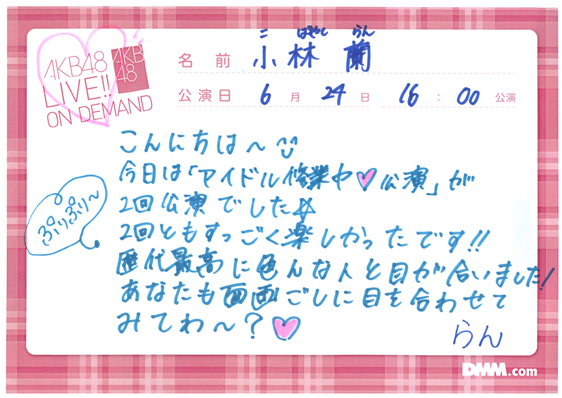 AKB48
LIVE!!
ON DEMAND
AKB
48
こ ばやし らん
名前 小林 蘭
公演日 6月24日 16:00公演
こんにちは〜
今日は「アイドル修業中♡公演」が
2回公演でした☆
2回ともすっごく楽しかったです!!
歴代最高に色んな人と目が合いました!
あなたも画面ごしに目を合わせて
みてわ〜?♡
ぷりぷり〜
らん
DMM.com